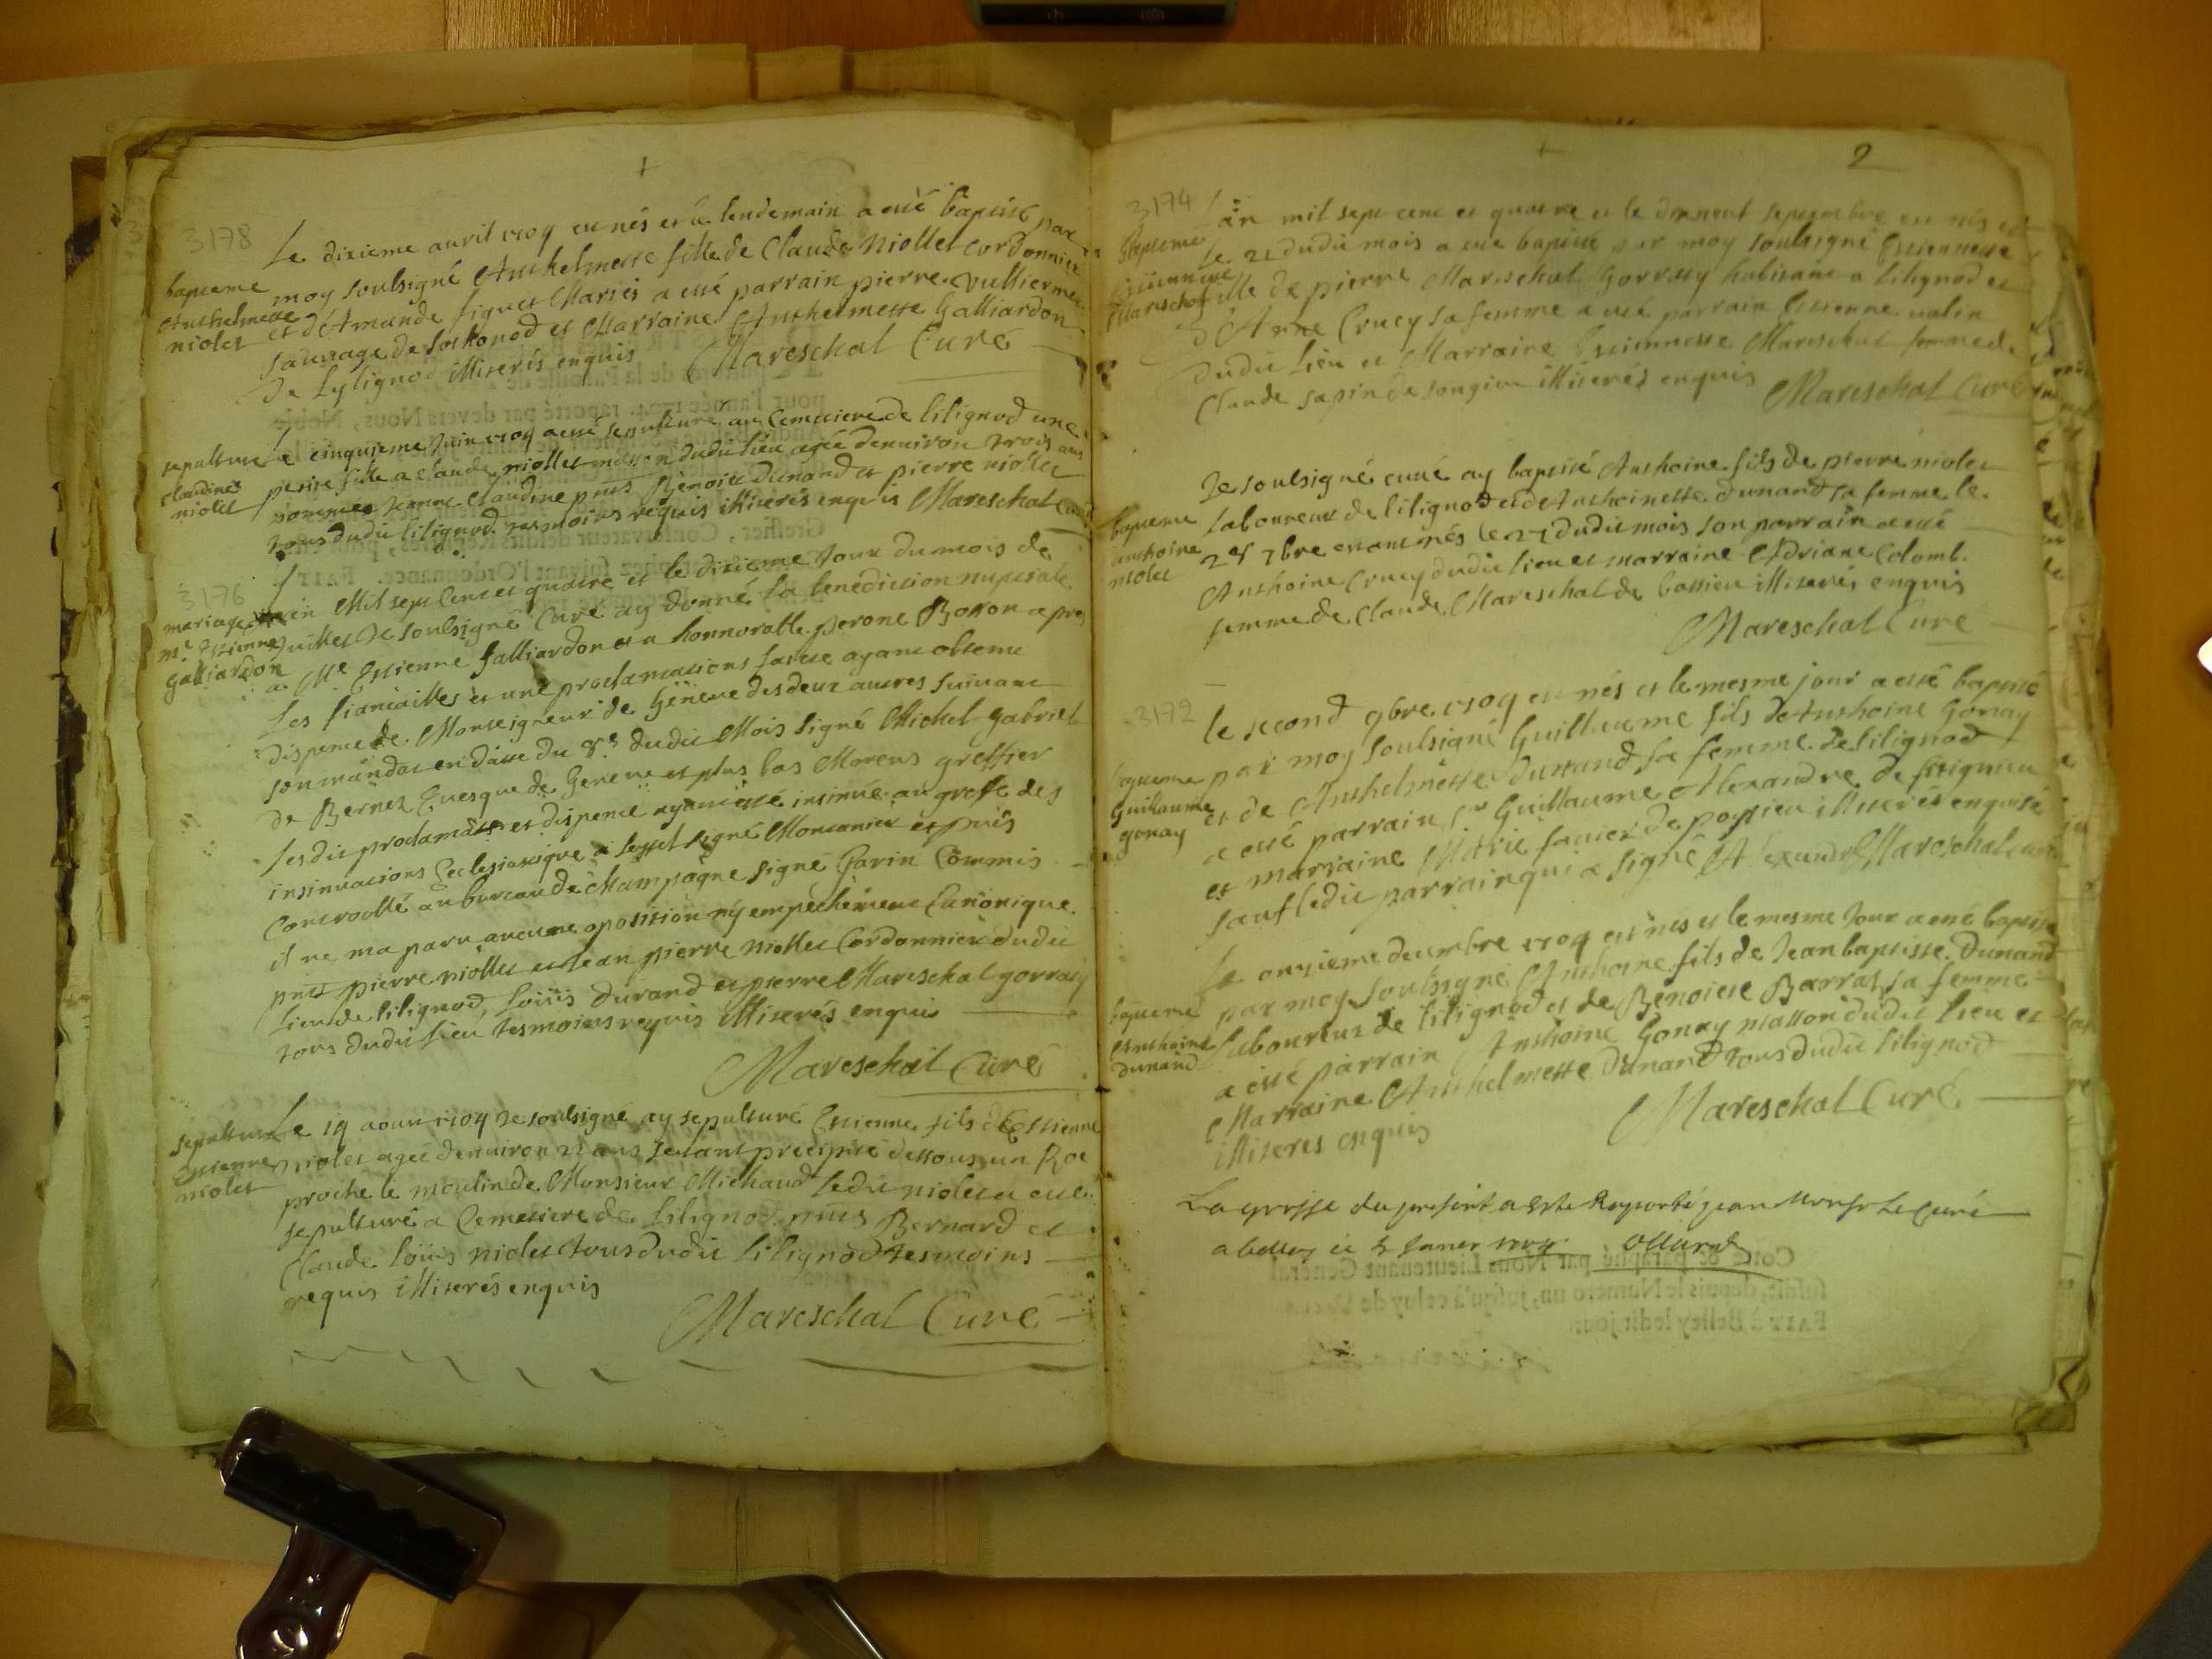 3178
Le dixieme auril 1704 est nés et le lendemain a esté baptisé par
moy soubsigné Anthelmette fille de Claude niollet Cordonnier
et d'Amande figuet Mariés a esté parrain pierre Vulliermet
sauvage de sothonod et Marraine Anthelmette Galliardon
de Lylignod Illiterés enquis Mareschal Curé
bapteme
Anthelmette
niolet
Le cinquieme Juin 1704 a esté sepulture au Cemetiere de lilignod une
petite fille a claude niollet masson dudit lieu agée denuiron trois ans
nommée Jeanne Claudine pnts Benoit Dunand et pierre niollet
tous dudit lilignod tesmoins requis illiterés enquis Mareschal Curé
sepulture
claudine
niolet
3176
L'an Mil sept Cent et quatre et le dixieme Jour du mois de
Juillet Je soubsigné Curé ay donné la benediction nuptiale
a Me Estienne Galliardon et a honnorable perone Bosson apres
Les fiancailles et une proclamations faitte ayant obtenu
dispense de Monseigneur de Geneve des deux autres suivant
son mandat en datte du 8e dudit Mois signé Michel Gabriel
de Bernex Euesque de Geneve et plus bas Morens greffier
lesdit proclamats et dispense ayant esté insinué au greffe des
insinuations Ecclesiastique a seyssel signé Montanier et puis
Controollé au bureau de champagne signé Garin Commis
il ne ma paru aucune oposition ny empechement Canonique
pnts pierre niollet et Jean pierre niollet Cordonnier dudit
Lieu de lilignod, Loüis Durand et pierre Mareschal gorraty
tous dudit lieu tesmoins requis Illiterés enquis
Mareschal Curé
mariage
me Estienne
Galliardon
Le 14 aoust 1704 Je soubsigné ay sepulturé Estienne fils d'Estienne
niolet agée denuiron 22 ans sestant precipité dessous un Roc
proche le moulin de Monsieur Michaud ledit niolet a esté
sepulturé a Cemetiere de lilignod pnts Bernard et
Claude Loüis niolet tous dudit lilignod tesmoins
requis Illiterés enquis
Mareschal Curé
sepulture
Estienne
niolet
2
3174
L'an mil sept cent et quatre et le dixneuf septembre est nés et
le 21 dudit mois a esté baptisé par moy soubsigné Estiennette
fille de pierre Mareschal Gorraty habitant a lilignod et
d'Anne Crucy sa femme a esté parrain Estienne
dudit lieu et Marraine Estiennette Mareschal femme de
Claude sapin de songieu illiterés enquis
Mareschal Curé
Bapteme
Estiennette
Mareschal
Je soubsigné curé ay baptisé Anthoine fils de pierre niolet
laboureur de lilignod et de Anthoinette Dunand sa femme le
7bre estant nés le 27 dudit mois son parrain a esté
Anthoine Crucy dudit lieu et marraine Adriane Colomb
femme de Claude Mareschal de bassieu illiterés enquis
Mareschal Curé
bapteme
anthoine
niolet
3172
le second 9bre 1704 est nés et le mesme jour a esté baptisé
par moy soubsigné Guillaume fils de Anthoine Gonay
et de Anthelmette Durrand sa femme de lilignod
a esté parrain Sr Guillaume Alexandre de
et marraine Marie de possieu illiterés enquisé
sauf ledit parrain qui a signé Alexandre Mareschal curé
bapteme
Guillaume
gonay
Le onzieme decembre 1704 est nés et le mesme Jour a esté baptisé
par moy soubsigné Anthoine fils de Jean baptiste Dunand
laboureur de lilignod et de Benoitte Barrat sa femme
a esté parrain Anthoine Gonay masson dudit lieu et
Marraine Anthelmette Dunand tous dudit lilignod
illiteres enquis
Mareschal Curé
bapteme
Anthoine
dunand
La grosse du present a esté Raporté par Monsr le curé
a belley ce